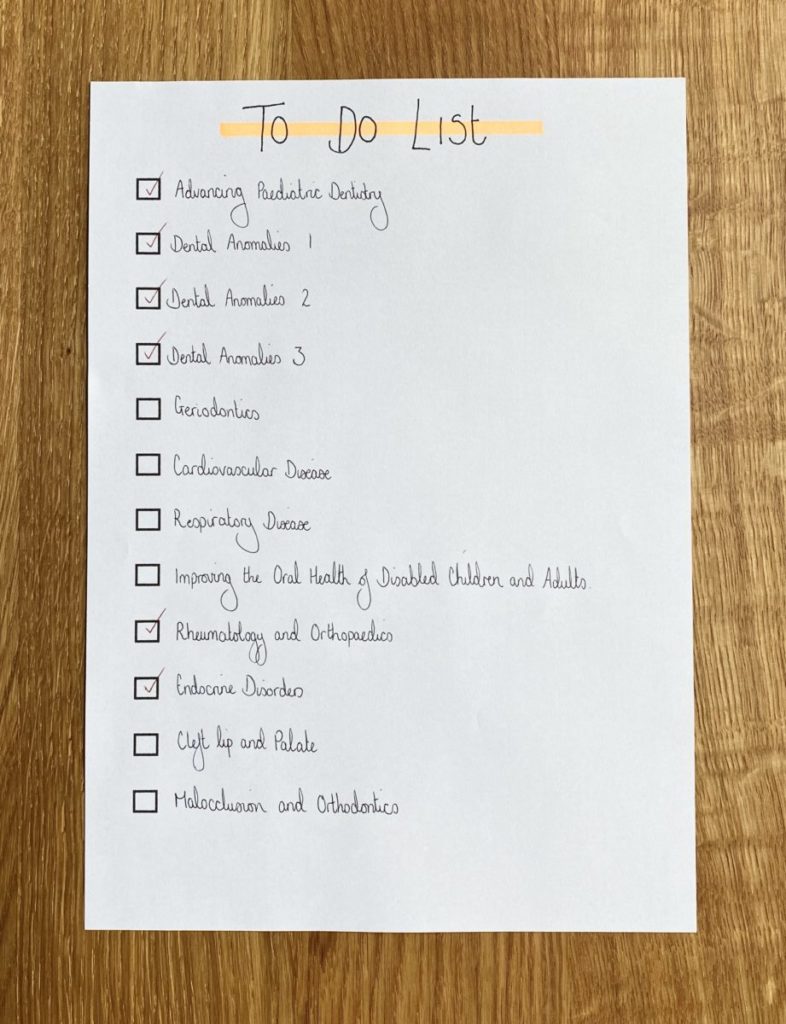 To Do List
Advancing Paediatric Dentistry
Dental Anomalies 1
Dental Anomalies 2
Dental Anomalies 3
Geriodontics
Cardiovascular Disease
Respiratory Disease
Improving the Oral Health of Disabled Children and Adults.
Rheumatology and Orthopaedics
Endocrine Disorders
Cleft lip and Palate
Malocclusion and Orthodontics